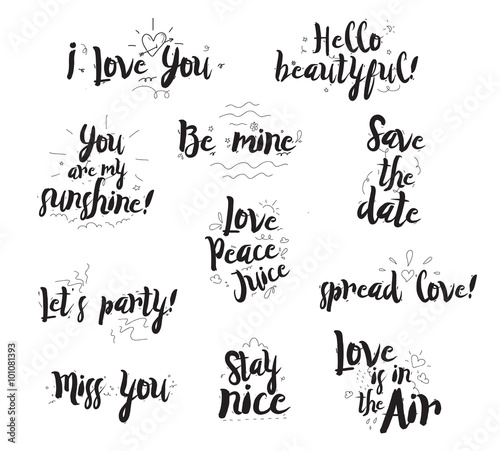 i Love You
Hello
beautyful!
You
are my
sunshine!
Be mine
Save
the
date
Love
Peace
Juice
Let's party!
spread Love!
Miss You
Stay
nice
Love
is in
the Air
Adobe Stock | #101081393